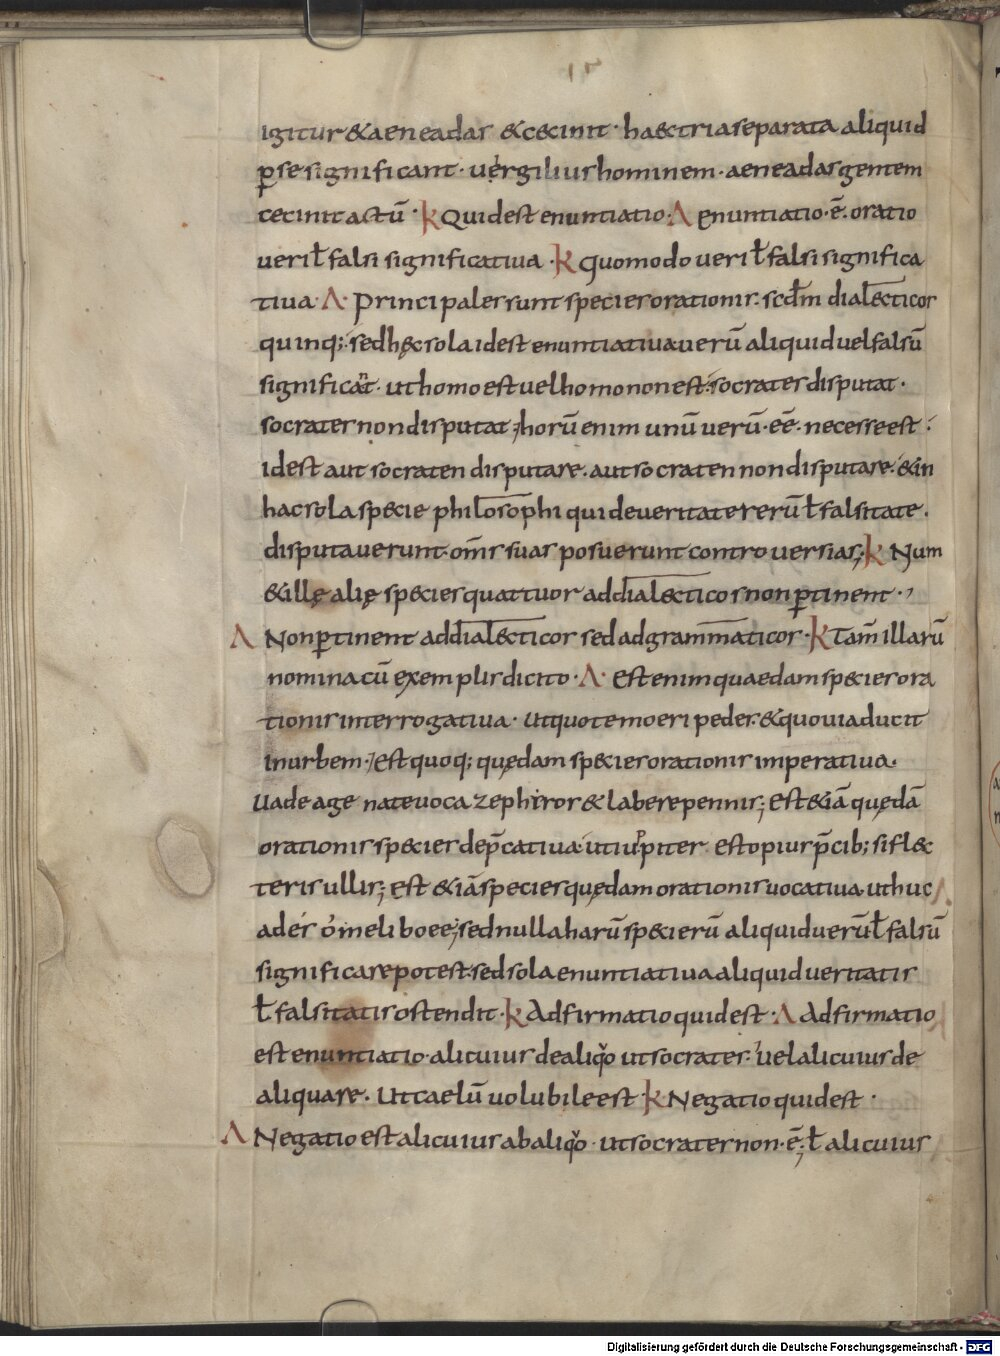 igitur & aeneadas & cecinit · haec tria separata aliquid
p̱ se significant · vergilius hominem · aeneadas gentem
cecinit actū · K Quid est enuntiatio · A enuntiatio · ē · oratio
veri ł falsi significativa · K Quomodo veri ł falsi significa
tiva · A · Principales sunt species orationis · scdm̄ dialecticos
quinq; · sed hęc sola id est enuntiativa verū aliquid vel falsū
significat · ut homo est vel homo non est · socrates disputat ·
socrates non disputat ; horū enim unū verū · eē · necesse est ·
id est aut socraten disputare · aut socraten non disputare · & in
hac sola specie philosophi qui de veritate rerū ł falsitate ·
disputaverunt · om̄s suas posuerunt controversias ; K Num
& illę alię species quattuor ad dialecticos non p̱tinent ·
A Non p̱tinent ad dialecticos sed ad grammaticos · K Tam̄ illarū
nomina cū exemplis dicito · A · Est enim quaedam species ora
tionis interrogativa · ut quo te moeri pedes · & quo via ducit
in urbem · Est quoq; quędam species orationis imperativa ·
Vade age nate voca zephiros & labere pennis ; Est & iā quędā
orationis species dep̄cativa · ut iupiter esto pius p̄cib; si fle
teris ullis ; est & iā species quędam orationis vocativa · ut huc
ades o meliboee ; sed nulla harū specierū aliquid verū ł falsū
significare potest · sed sola enuntiativa aliquid veritatis
ł falsitatis ostendit · K Adfirmatio quid est · A Adfirmatio
est enuntiatio · alicuius de aliqo ut socrates · vel alicuius de
aliqua re · Ut caelū volubile est K Negatio quid est ·
A Negatio est alicuius ab aliqo · ut socrates non · ē ; ł alicuius
Digitalisierung gefördert durch die Deutsche Forschungsgemeinschaft - DFG